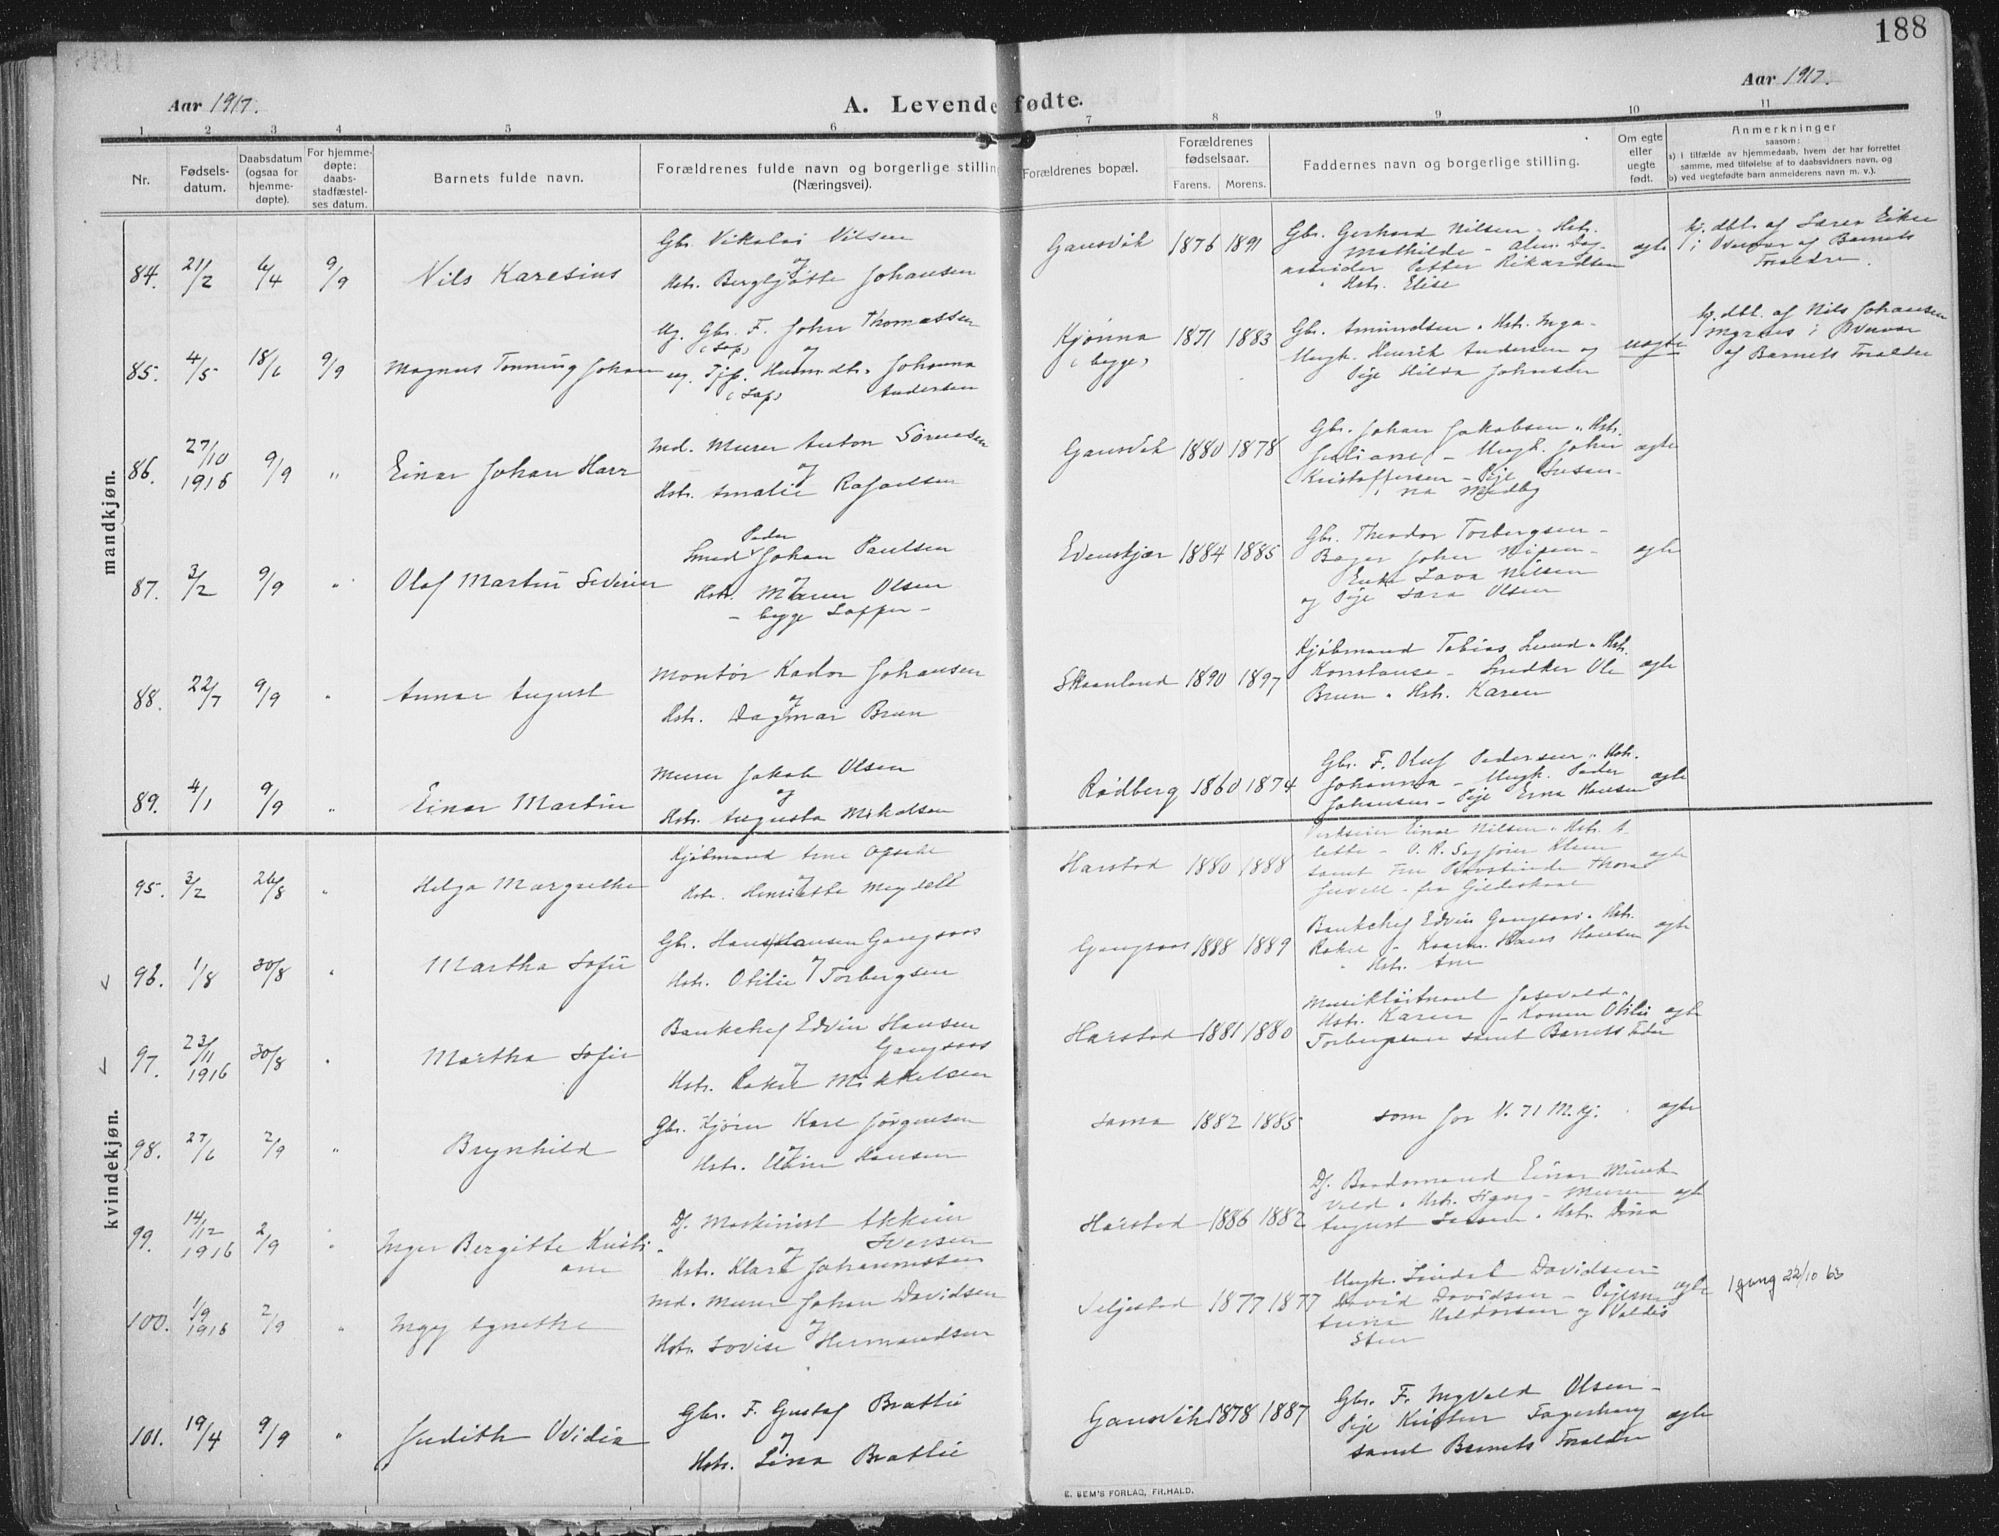 188
Aar 1917.
A. Levende fødte.
Aar 1917.
1 2 3 4 5 6 7 8 9 10 11
Nr.
Fødsels-
datum.
Daabsdatum
(ogsaa for
hjemme-
døpte).
For hjemme-
døpte:
daabs-
stadfæstel-
ses datum.
Barnets fulde navn.
Forældrenes fulde navn og borgerlige stilling
(Næringsvei).
Forældrenes bopæl.
Forældrenes
fødselsaar.
Farens. Morens.
Faddernes navn og borgerlige stilling.
Om egte
eller
uegte
født.
Anmerkninger
saasom:
a) i tilfælde av hjemmedaab, hvem der har forrettet
samme, med tilføielse af to daabsvidners navn, og
b) ved uegtefødte barn anmelderens navn m. v.).
mandkjøn.
84. 21/2 6/4 9/9 Nils Karesius
Gbr. Nikolai Nilsen
og
Hstr. Bergljotte Johansen
Gansvik 1876 1891
Gbr. Gerhard Nilsen - Hstr.
Mathilde - Alm. Dag-
arbeider Petter Rikardsen
" Hstr. Elise
egte
hj. dbt. af Søren Eikse
i Overvær af Barnets
Foraldre.
85. 4/5 18/6 9/9 Magnus Tonning Johan
Ug. Gbr. F. John Thomassen
(Lap) og
ug. Tjp. Husmdtr. Johanna
(Lap) Andersen
Kjønna 1871 1883
(begge)
Gbr. Amundsen " Hstr. Inga -
Ungk. Henrik Andersen og
Pige Hilda Johnsen
uegte
hj. dbt. af Nils Johansen
Myrnes i Overvær
af Barnets Foraldre
86. 27/10 1916 9/9 " Einar Johan Harr
Md. Murer Anton Sørensen
og
Hstr. Amalie Rafaelsen
Gansvik 1880 1878
Gbr. Johan Jakobsen " Hstr.
Juliane - Ungk. Johan
Kristoffersen - Pige Susan-
na Medby
egte
87. 3/2 9/9 " Olaf Martin Severin
Peder
Smed Johan Paulsen
og
Hstr. Maren Olsen
- begge Lapper -
Evenskjær 1884 1885
Gbr. Theodor Torbergsen -
Bager Johan Nipen -
Enke Lava Nilsen
og Pige Sara Olsen
egte
88. 22/7 9/9 " Annar August
Montør Kador Johansen
og
Hstr. Dagmar Brun
Skaanland 1890 1897
Kjøbmand Tobias Lund " Hstr.
Konstanse - Snedker Ole
Brun " Hstr. Karen
egte
89. 4/1 9/9 " Einar Martin
Murer Jakob Olsen
og
Hstr. Augusta Mikalsen
Rødberg 1860 1874
Gbr. F. Oluf Pedersen " Hstr.
Johanna - Ungk. Peder
Johansen - Pige Erna Hansen
egte
kvindekjøn.
95. 3/2 26/8 " Helga Margrethe
Kjøbmand Arne
og
Hstr. Henriette Meydell
Harstad 1880 1888
Einar Nilsen " Hstr. A-
samt Frk. Thora
Juvell - fra Gildeskaal
egte
96. 1/8 30/8 " Martha Sofie
Gbr. Hans Hansen Gangsaas
og
Hstr. Otilie Torbergsen
Gangsaas 1888 1889
Bankchef Edvin Gangsaas " Hstr.
Rakel - Kaarm. Hans Hansen
" Hstr. Ane
egte
97. 23/11 1916 30/8 " Martha Sofie
Bankchef Edvin Hansen
Gangsaas
og
Hstr. Rakel Mikkelsen
Harstad 1881 1880
Musikløitnant
Hstr. Karen - Konen Otilie
Torbergsen samt Barnets Fader
egte
98. 27/6 2/9 " Brynhild
Gbr. Kjører Karl Jørgensen
og
Hstr. Hansen
sama 1882 1885
som for N. 71 M.kj.
egte
99. 14/12 1916 2/9 " Inger Bergitte Kristi-
ane
Df. Maskinist
Iversen
og
Hstr. Klara Johannessen
Harstad 1886 1882
Df. Baadsmand Einar
Hstr. - Murer
August Hstr. Dina
egte
100. 1/9 1916 2/9 " Ingy Agnethe
Md. Murer Johan Davidsen
og
Hstr. Lovise Hermandsen
Seljestad 1877 1877
Ungk. Davidsen
David Davidsen - Pigerne
Anna Haldorsen og Valdis
Steen
egte
1 gang 22/10 63
101. 19/4 9/9 " Judith Ovidia
Gbr. F. Gustaf Bratlie
og
Hstr. Lina Bratlie
Gansvik 1878 1887
Gbr. F. Ingvald Olsen -
Pige Kirsten Fagerberg
samt Barnets Foraldre
egte
E. SEM'S FORLAG, FR.HALD.